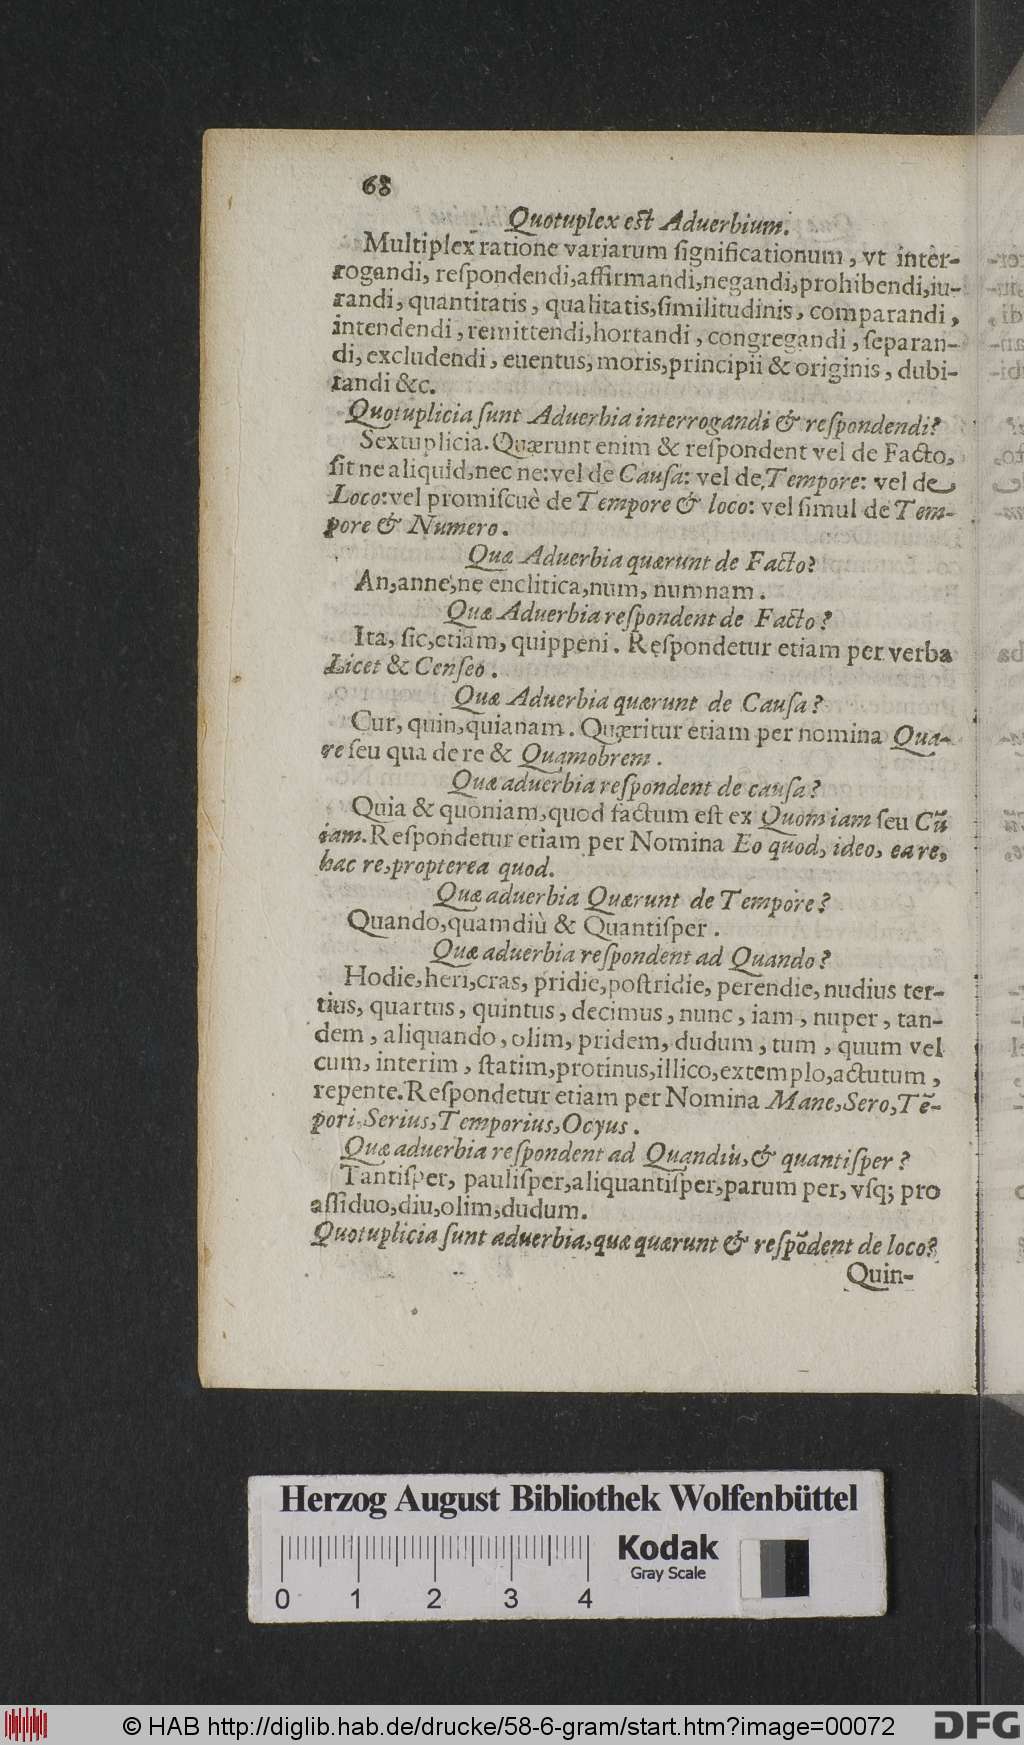 68
Quotuplex est Aduerbium.
Multiplex ratione variarum ſignificationum, vt inter-
rogandi, reſpondendi, affirmandi, negandi, prohibendi, iu-
randi, quantitatis, qualitatis, ſimilitudinis, comparandi,
intendendi, remittendi, hortandi, congregandi, ſeparan-
di, excludendi, euentus, moris, principii & originis, dubi-
tandi &c.
Quotuplicia ſunt Aduerbia interrogandi & reſpondendi?
Sextuplicia. Quærunt enim & reſpondent vel de Facto,
ſit ne aliquid, nec ne: vel de Cauſa: vel de Tempore: vel de
Loco: vel promiſcuè de Tempore & loco: vel ſimul de Tem-
pore & Numero.
Quæ Aduerbia quærunt de Facto?
An, anne, ne enclitica, num, numnam.
Quæ Aduerbia reſpondent de Facto?
Ita, ſic, etiam, quippeni. Reſpondetur etiam per verba
Licet & Cenſeo.
Quæ Aduerbia quærunt de Cauſa?
Cur, quin, quianam. Quæritur etiam per nomina Qua-
re ſeu qua de re & Quamobrem.
Quæ aduerbia reſpondent de cauſa?
Quia & quoniam, quod factum eſt ex Quom iam ſeu Cū
iam. Reſpondetur etiam per Nomina Eo quod, ideo, ea re,
hac re, propterea quod.
Quæ aduerbia Quærunt de Tempore?
Quando, quamdiù & Quantiſper.
Quæ aduerbia reſpondent ad Quando?
Hodie, heri, cras, pridie, poſtridie, perendie, nudius ter-
tius, quartus, quintus, decimus, nunc, iam, nuper, tan-
dem, aliquando, olim, pridem, dudum, tum, quum vel
cum, interim, ſtatim, protinus, illico, extemplo, actutum,
repente. Reſpondetur etiam per Nomina Mane, Sero, Tē-
pori, Serius, Temporius, Ocyus.
Quæ aduerbia reſpondent ad Quandiù, & quantiſper?
Tantiſper, pauliſper, aliquantiſper, parum per, vſq; pro
aſſiduo, diu, olim, dudum.
Quotuplicia ſunt aduerbia, quæ quærunt & reſpōdent de loco?
Quin-
Herzog August Bibliothek Wolfenbüttel
Kodak
Gray Scale
0 1 2 3 4
© HAB http://diglib.hab.de/drucke/58-6-gram/start.htm?image=00072
DFG